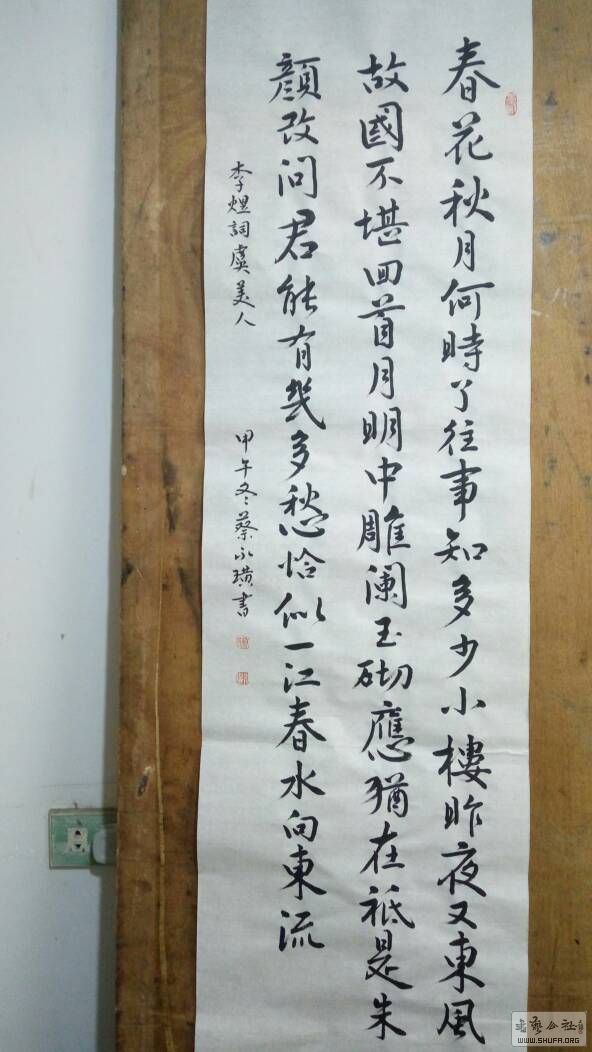 春花秋月何時了往事知多少小樓昨夜又東風
故國不堪回首月明中雕闌玉砌應猶在祗是朱
顏改問君能有幾多愁恰似一江春水向東流
李煜詞虞美人
甲午冬蔡永璜書
WWW.SHUFA.ORG